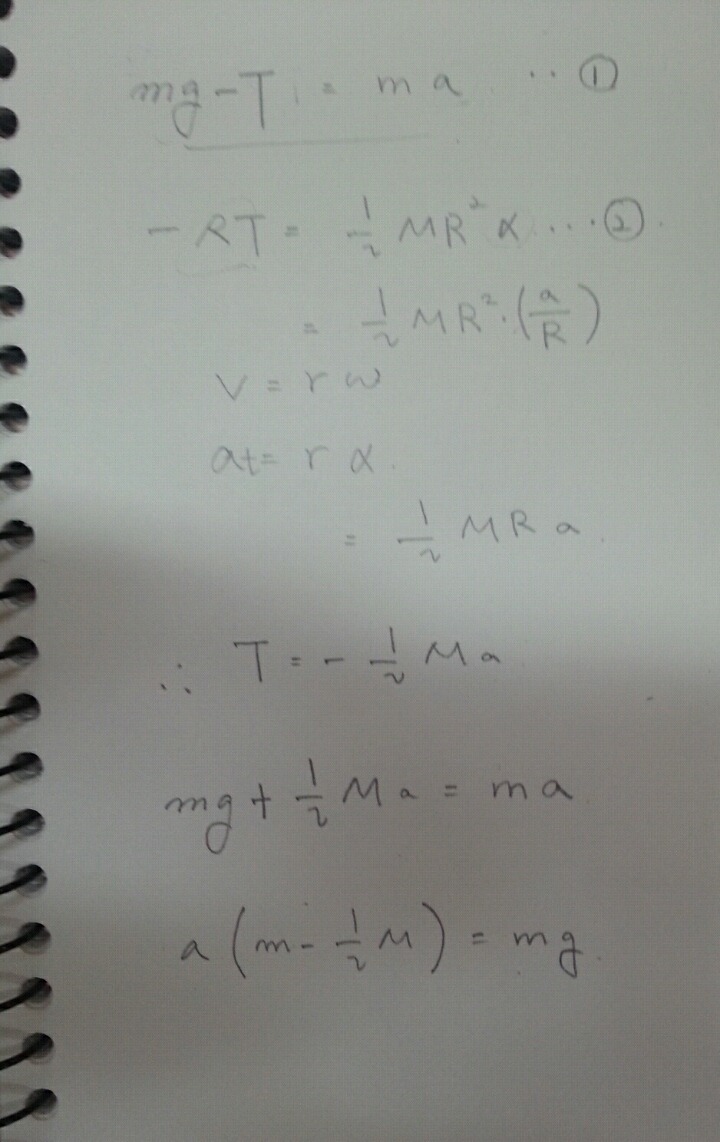 mg - T = ma ·· ①
- RT = 1/2 MR² α ... ②.
= 1/2 MR² · (a/R)
v = rω
at = rα.
= 1/2 MRa.
∴ T = - 1/2 Ma
mg + 1/2 Ma = ma
a (m - 1/2 M) = mg.